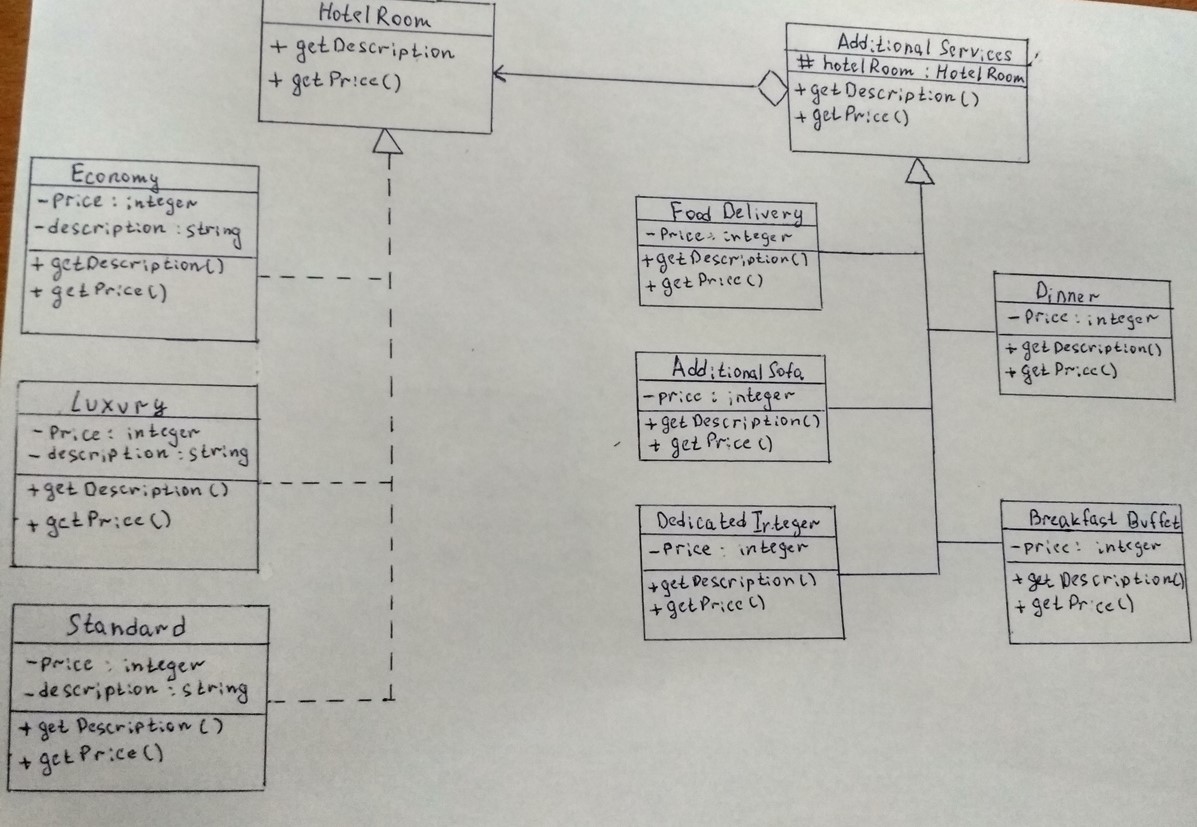 Hotel Room
+ getDescription
+ getPrice()
Additional Services
# hotelRoom : HotelRoom
+ getDescription()
+ getPrice()
Economy
- Price : integer
- description : string
+ getDescription()
+ getPrice()
Luxury
- Price : integer
- description : string
+ getDescription()
+ getPrice()
Standard
- Price : integer
- description : string
+ getDescription()
+ getPrice()
Food Delivery
- Price : integer
+ getDescription()
+ getPrice()
Additional Sofa
- price : integer
+ getDescription()
+ getPrice()
Dedicated Integer
- Price : integer
+ getDescription()
+ getPrice()
Dinner
- Price : integer
+ getDescription()
+ getPrice()
Breakfast Buffet
- price : integer
+ getDescription()
+ getPrice()